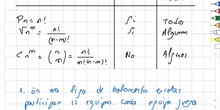 Pn = n! Si Todos
Vn^m = n!/(n-m)! Si Algunos
Cn^m = (n m) = n!/m!(n-m)! No Algunos
1. En una liga de baloncesto escolar
participan 12 equipos. Cada equipo juega